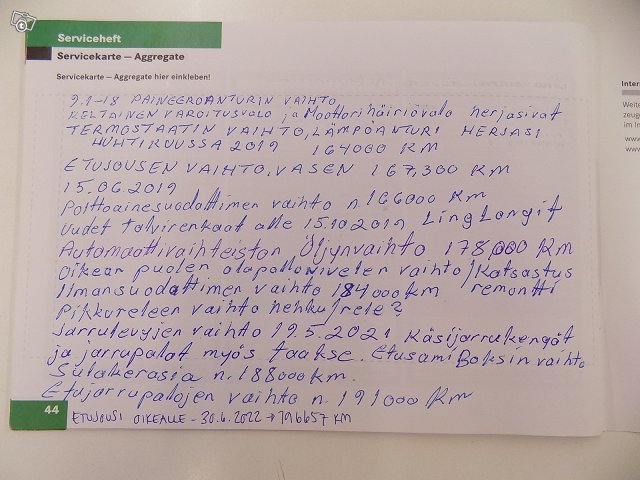 Serviceheft
Servicekarte – Aggregate
Servicekarte – Aggregate hier einkleben!
9.1-18 PAINEEROANTURIN VAIHTO
KELTAINEN VAROITUSVALO ja Moottorihäiriövalo herjasivat
TERMOSTAATIN VAIHTO, LÄMPÖANTURI HERJASI
HUHTIKUUSSA 2019 164000 KM
ETUJOUSEN VAIHTO, VASEN 167,300 KM
15.06.2019
Polttoainesuodattimen vaihto n. 166000 KM
Uudet talvirenkaat alle 15.10.2019 LingLongit
Automaattivaihteiston Öljynvaihto 178,000 KM
Oikean puolen alapallonivelen vaihto/Katsastus
Ilmansuodattimen vaihto 184000km remontti
Pikkureleen vaihto hehku/rele?
Jarrulevyjen vaihto 19.5.2021 Käsijarrukengät
ja jarrupalat myös taakse. Etusami Boksin vaihto
Sulakerasia n. 188000km.
Etujarrupalojen vaihto n. 191000 Km
44
ETUJOUSI OIKEALLE - 30.6.2022 → 196657 KM
Inter
Weite
zeug
im In
www
www.